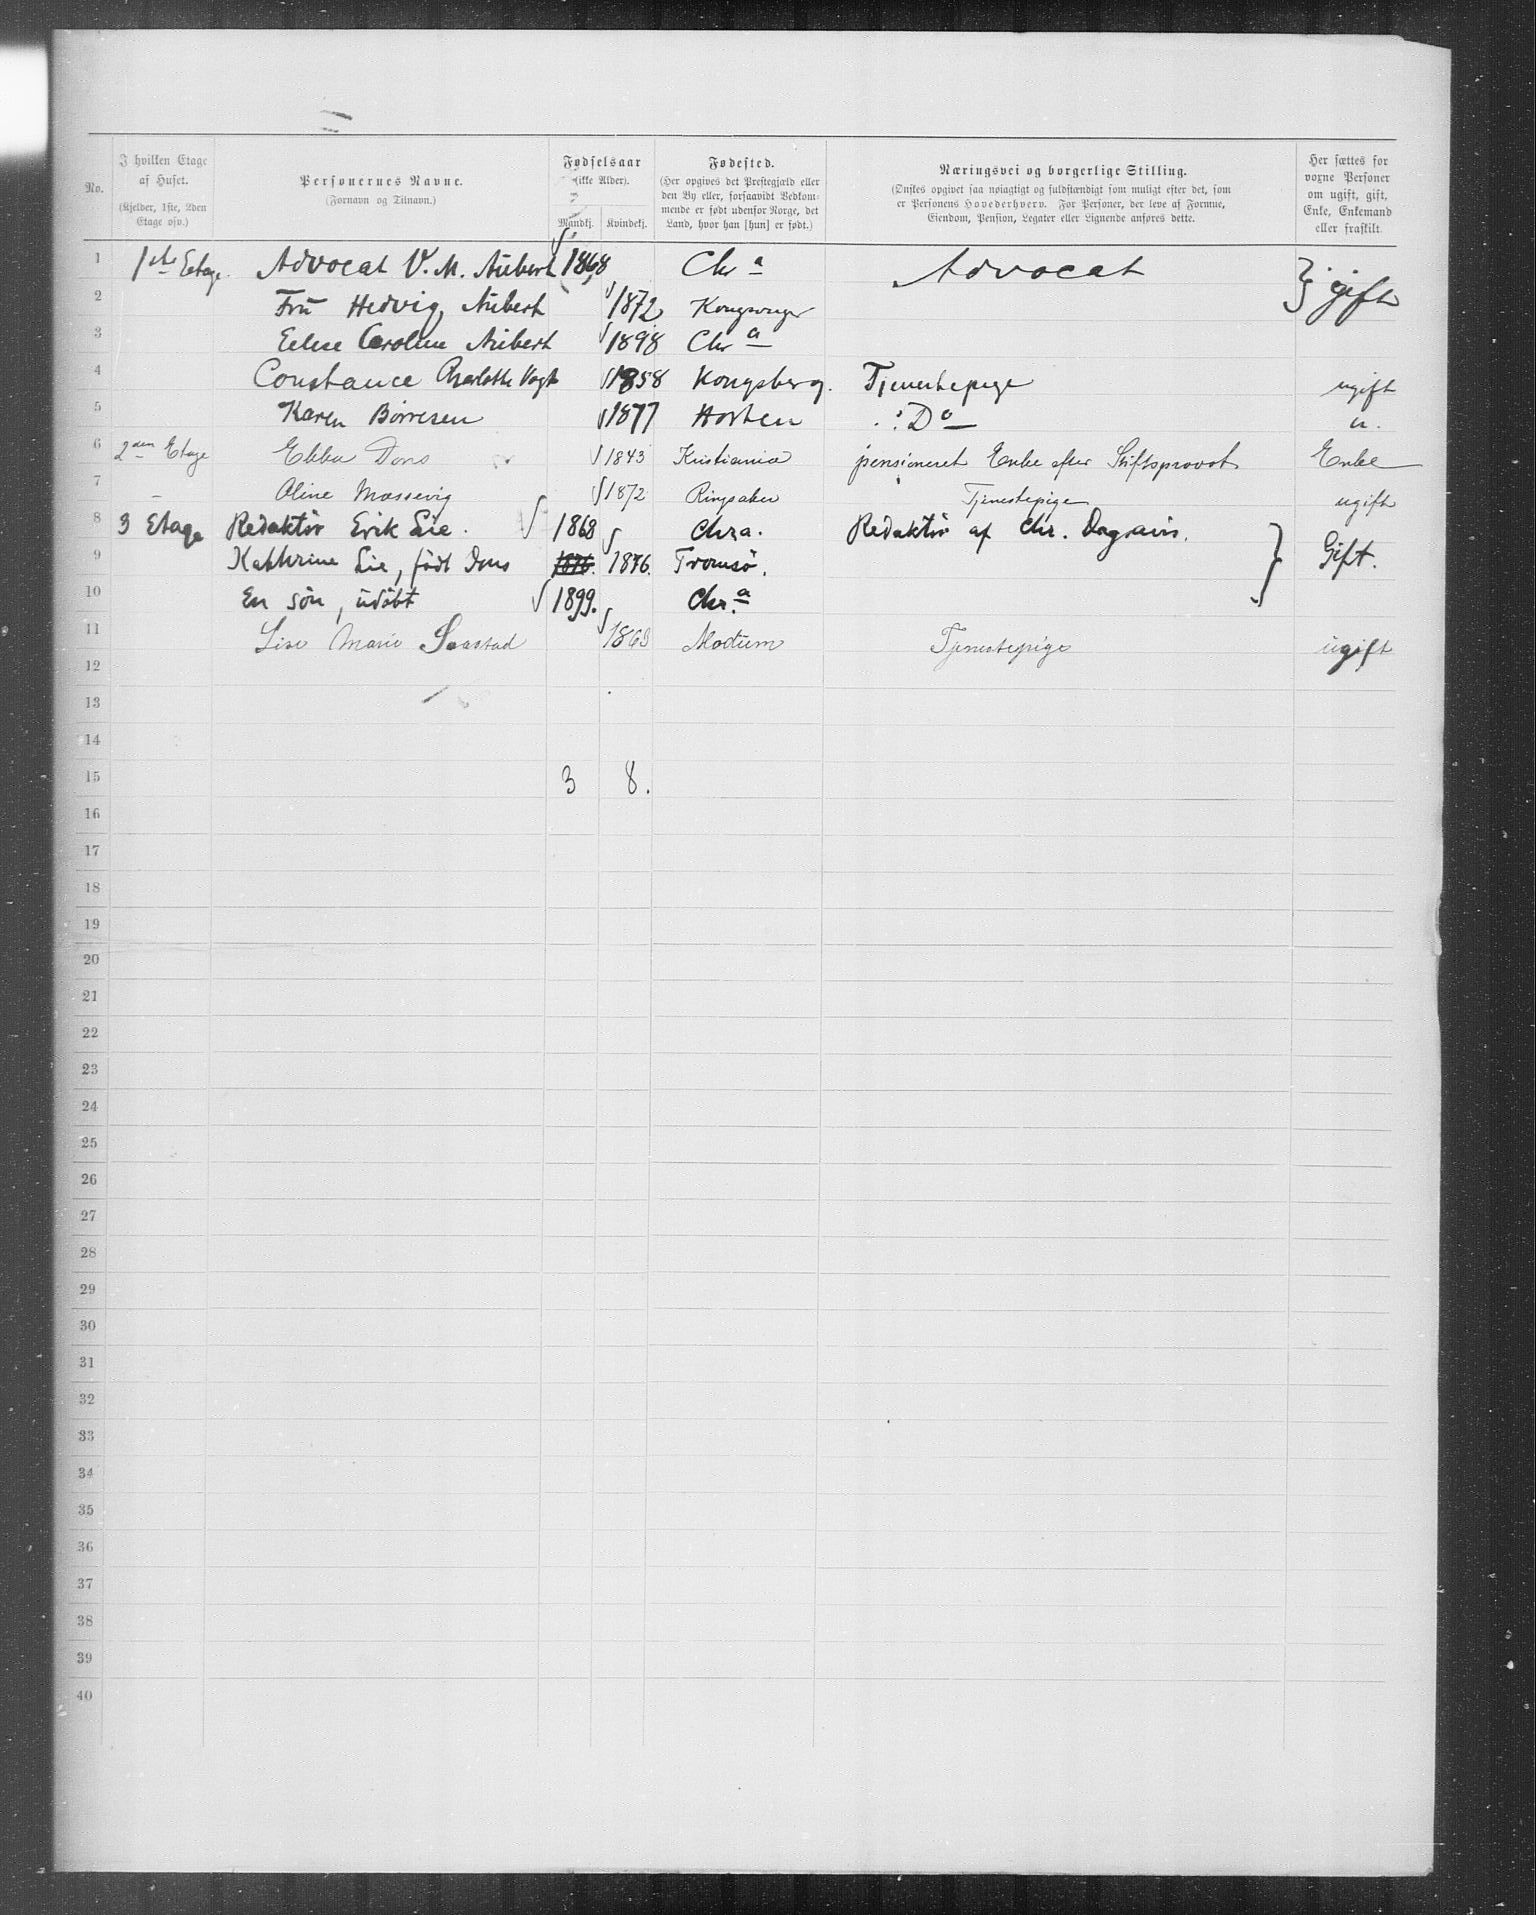 No.
I hvilken Etage af Huset. (Kjelder, 1ste, 2den Etage osv.)
Personernes Navne. (Fornavn og Tilnavn.)
Fødselsaar (ikke Alder). Mandkj. Kvindekj.
Fødested. (Her opgives det Prestegjæld eller den By eller, forsaavidt Vedkommende er født udenfor Norge, det Land, hvor han [hun] er født.)
Næringsvei og borgerlige Stilling. (Ønskes opgivet saa nøiagtigt og fuldstændigt som muligt efter det, som er Personens Hovederhverv. For Personer, der leve af Formue, Eiendom, Pension, Legater eller Lignende anføres dette.)
Her sættes for voxne Personer om ugift, gift, Enke, Enkemand eller fraskilt.
1 1ste Etage. Advocat V. M. Aubert 1868 Chr a Advocat } gift
2 Fru Hedvig Aubert 1872 Kongsvinger
3 Eelise Caroline Aubert 1898 Chr a
4 Constance Charlotte Vogt 1858 Kongsberg. Tjenestepige ugift
5 Karen Börresen 1877 Horten Do u.
6 2den Etage Ebba Dons 1843 Kristiania pensioneret Enke efter Stiftsprovst Enke
7 – Aline Mossevig 1872 Ringsaker Tjenestepige ugift
8 3 Etage Redaktör Erik Lie. 1868 Chra. Redaktör af Chr. Dagsavis. } Gift.
9 Kathrine Lie, född Dons 1876. 1876. Tromsö.
10 En sön, udöbt 1899. Chr. a
11 Lise Marie Saastad 1863 Modum Tjenestepige ugift
12
13
14
15 3 8.
16
17
18
19
20
21
22
23
24
25
26
27
28
29
30
31
32
33
34
35
36
37
38
39
40